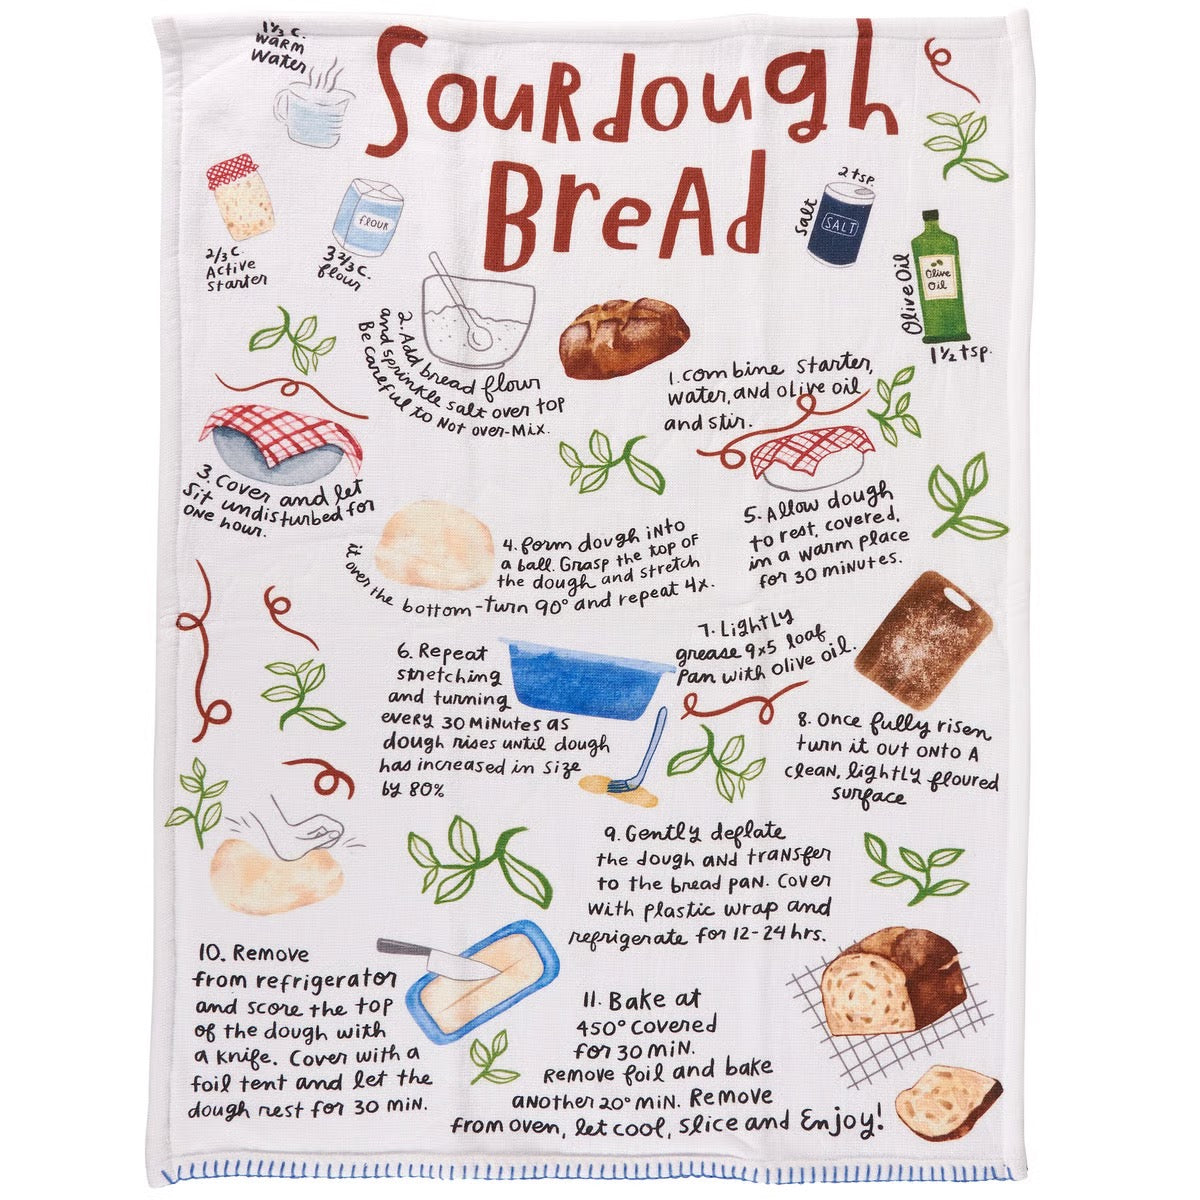 Sourdough
Bread
1 1/3 c.
warm
water
2/3 c.
Active
starter
flour
3 2/3 c.
flour
2 tsp.
salt
SALT
Olive Oil
Olive
Oil
1 1/2 tsp.
1. Combine starter,
water, and olive oil
and stir.
2. Add bread flour
and sprinkle salt over top
Be careful to Not over-Mix.
3. Cover and let
sit undisturbed for
one hour.
4. Form dough into
a ball. Grasp the top of
the dough and stretch
it over the bottom - turn 90° and repeat 4x.
5. Allow dough
to rest, covered,
in a warm place
for 30 minutes.
6. Repeat
stretching
and turning
every 30 Minutes as
dough rises until dough
has increased in size
by 80%
7. Lightly
grease 9x5 loaf
pan with olive oil.
8. Once fully risen
turn it out onto a
clean, lightly floured
surface
9. Gently deflate
the dough and transfer
to the bread pan. Cover
with plastic wrap and
refrigerate for 12-24 hrs.
10. Remove
from refrigerator
and score the top
of the dough with
a knife. Cover with a
foil tent and let the
dough rest for 30 min.
11. Bake at
450° covered
for 30 min.
Remove foil and bake
another 20° min. Remove
from oven, let cool, slice and Enjoy!